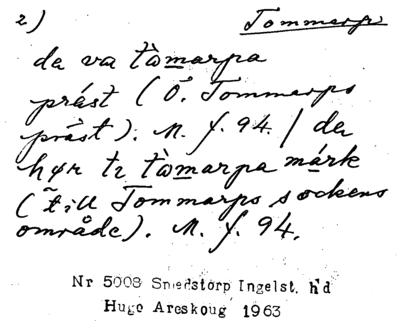 2) Tommarp
da va tὼmarpa
präst (Ö. Tommarps
präst). M. f. 94. / da
hør tɪ tὼmarpa márk
(till Tommarps sockens
område). M. f. 94.
Nr 5008 Smedstorp Ingelst. hd
Hugo Areskoug 1963